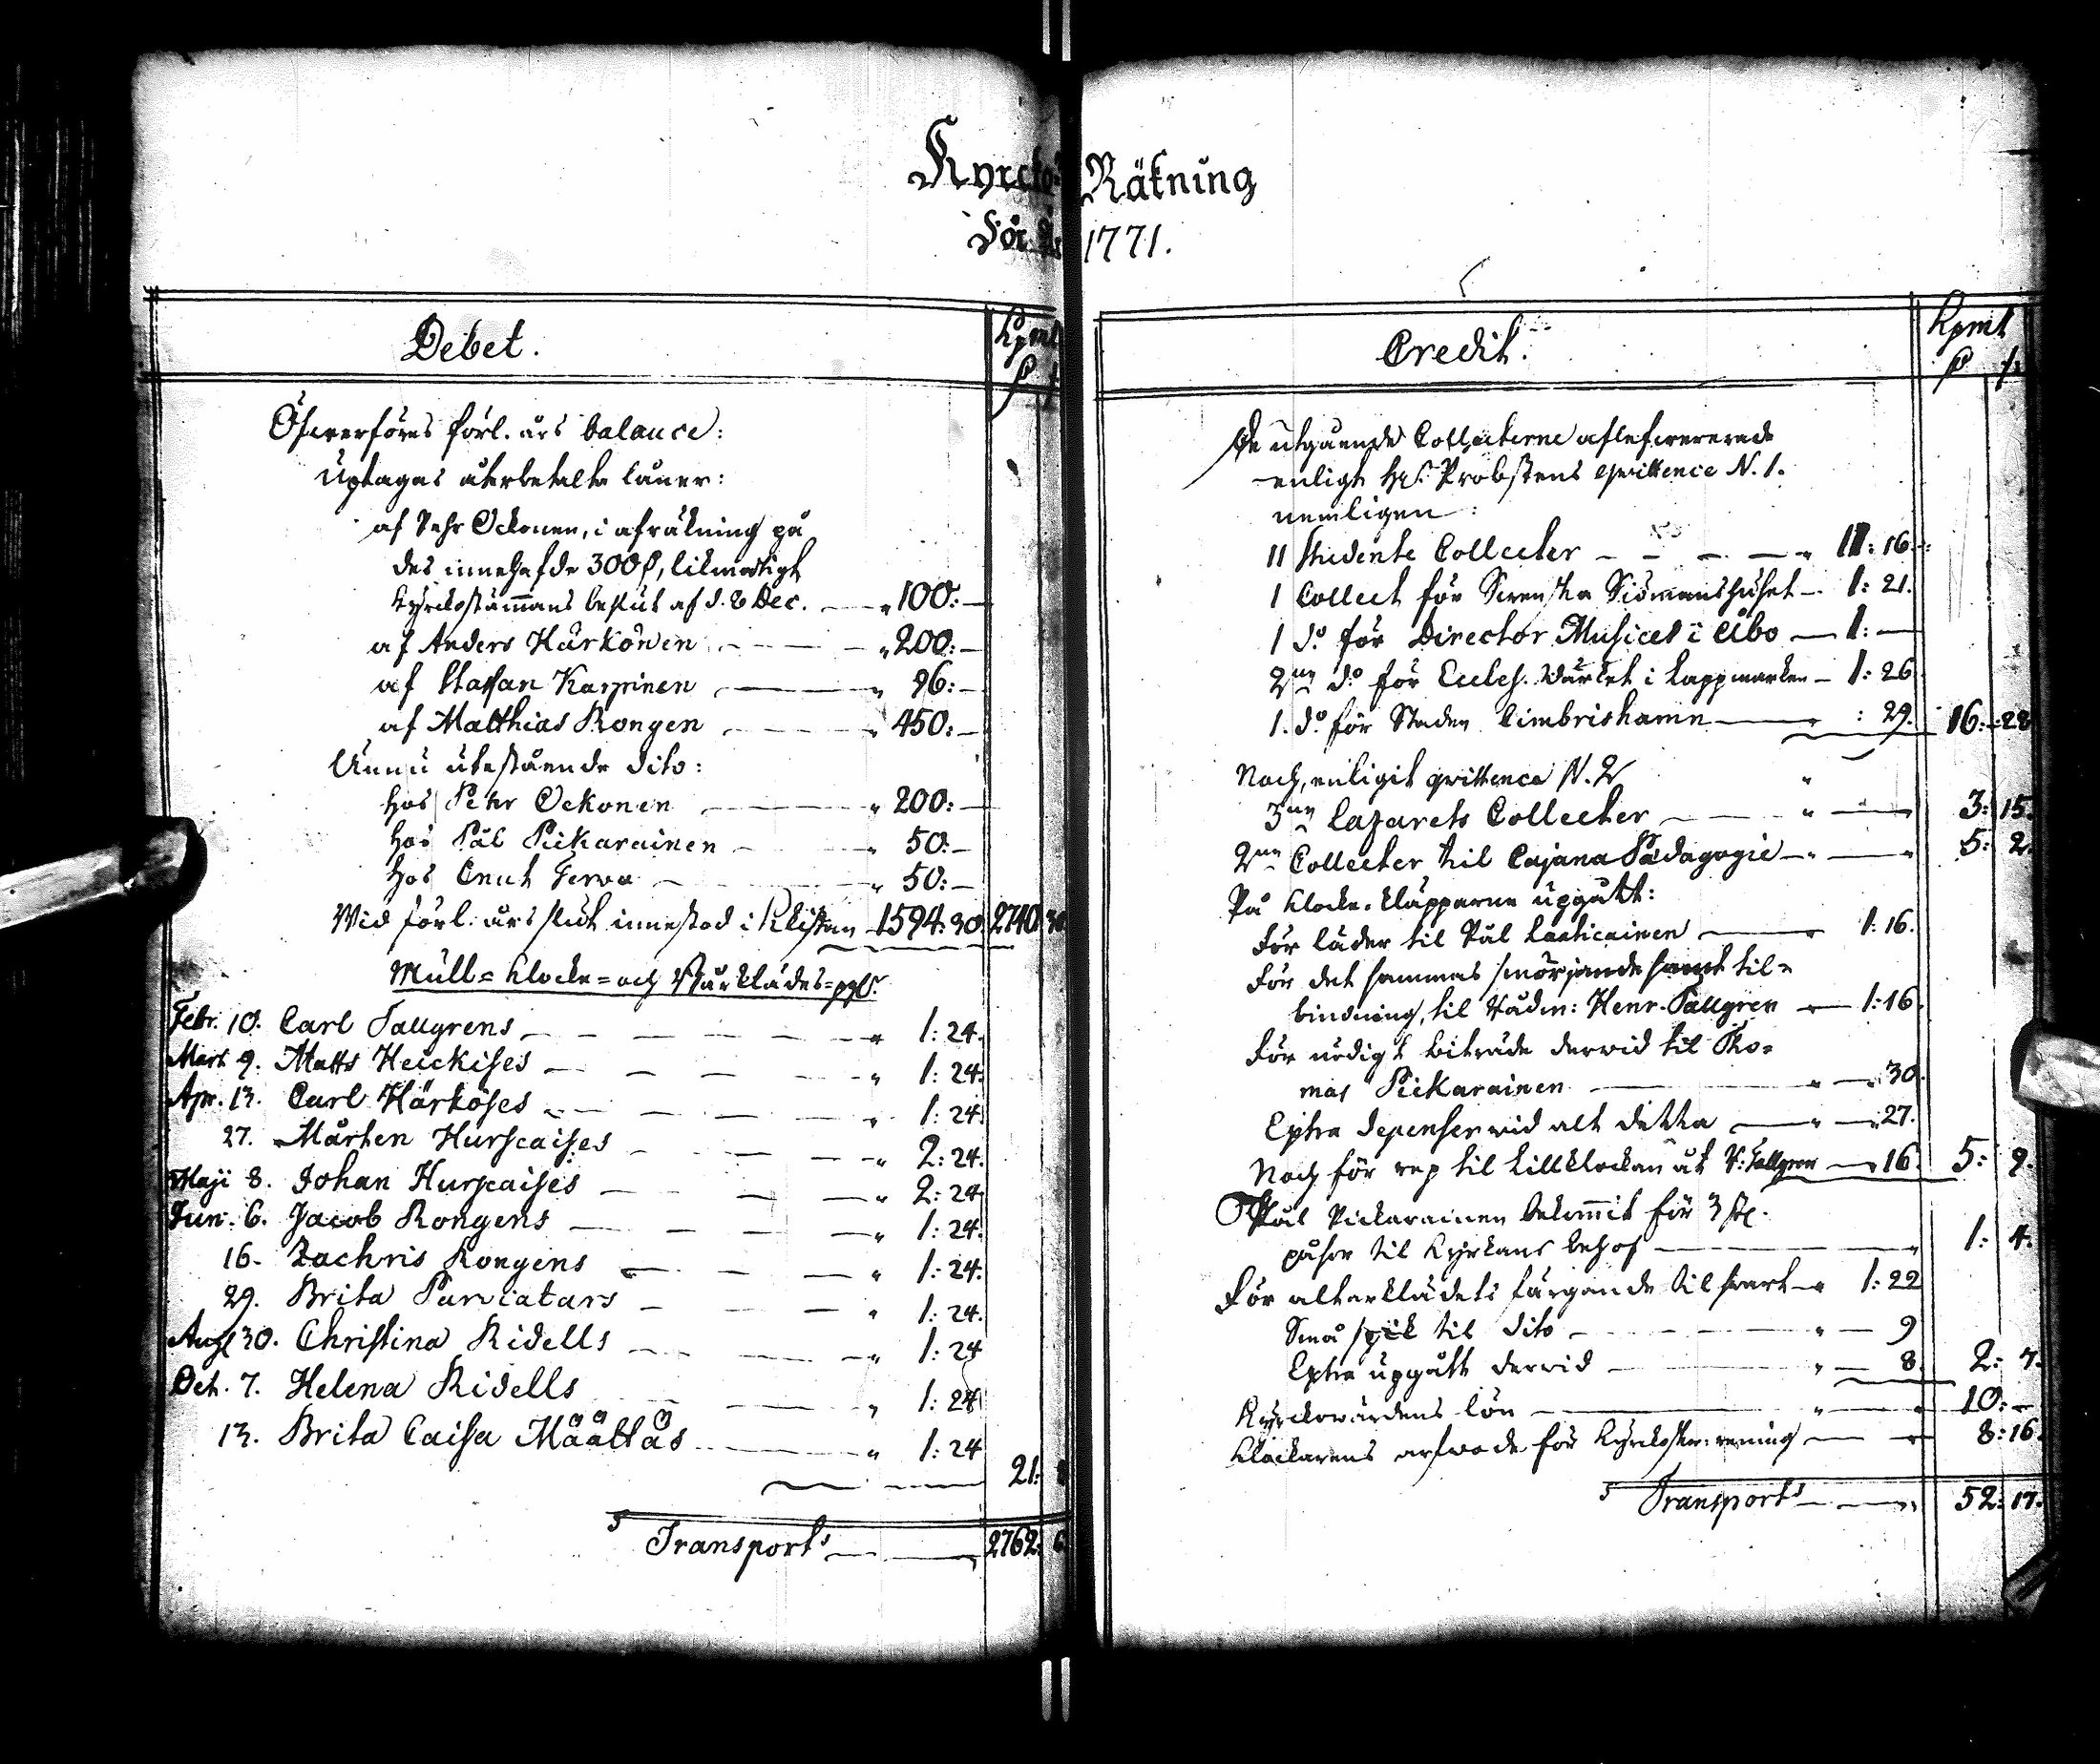 Kyrcko-Räkning
För År 1771.
Debet. Kpmt
Öfwerföres förl. års balance:
Uptagas återbetalte låner:
af Pehr Ockonen, i afräkning på
des innehafde 300 P, likmätigt
Kyrckostämmans beslut af d. 8 Dec. — " 100: —
af Anders Härkönen — " 200: —
af Staffan Karpinen — " 96: —
af Matthias Rongen — " 450: —
Ännu utestående dito:
hos Pehr Ockonen — " 200: —
hos Pål Pickarainen — " 50: —
hos Cnut Terwa — " 50: —
Wid förl. års slut innestod i Kistan 1594: 30. 2740: 30
Mull= Klocke= och Bårklädes=pgr.
Febr. 10. Carl Tallgrens — " 1: 24.
Mart. 9. Matts Heickises — " 1: 24.
Apr. 13. Carl Härköses — " 1: 24.
27. Mårten Hurscaises — " 2: 24.
Maji 8. Johan Hurscaises — " 2: 24.
Jun. 6. Jacob Rongens — " 1: 24.
16. Zachris Rongens — " 1: 24.
29. Brita Parviatars — " 1: 24.
Aug. 30. Christina Ridells — " 1: 24
Oct. 7. Helena Ridells — " 1: 24
13. Brita Caisa Määttäs — " 1: 24
21:
Transport — 2762: 6.
Credit. Kpmt
De utgående Collecterne aflefwererade
enligt Hr Probstens qvittence N. 1.
nemligen:
11 Studente Collecter — " 11: 16.
1 Collect för Swenska Siömanshuset — 1: 21.
1 do för Director Musices i Åbo — 1: —
2ne do för Eccles. Wärket i Lappmarken — 1: 26
1. do för Staden Cimbrishamn — : 29. 16: 28
Noch, enligit qvittence N. 2
3ne Lazarets Collecter — " 3: 15.
2ne Collecter til Cajana Pædagogie — " 5: 2.
På Klocke-kläpparne upgått:
För läder til Pål Laaticainen — 1: 16.
För det sammas smörjande samt til=
binding, til Rådm: Henr. Tallgren — 1: 16.
För nödigt biträde derwid til Tho=
mas Pickarainen — " 30.
Extra depenser wid alt detta — " 27.
Noch för rep til lillklockan åt R: Tallgren — 16. 5: 9.
Pål Pickarainen bekommit för 3 st.
påsar til Kyrkans behof — " 1: 4.
För altarklädets färgande til svart — " 1: 22
Små spik til dito — " 9
Extra upgått derwid — " 8. 2: 7.
Kyrckowärdens lön — " 10: —
Klockarens arfwode för Kyrckones rening — 8: 16.
Transport — 52: 17.